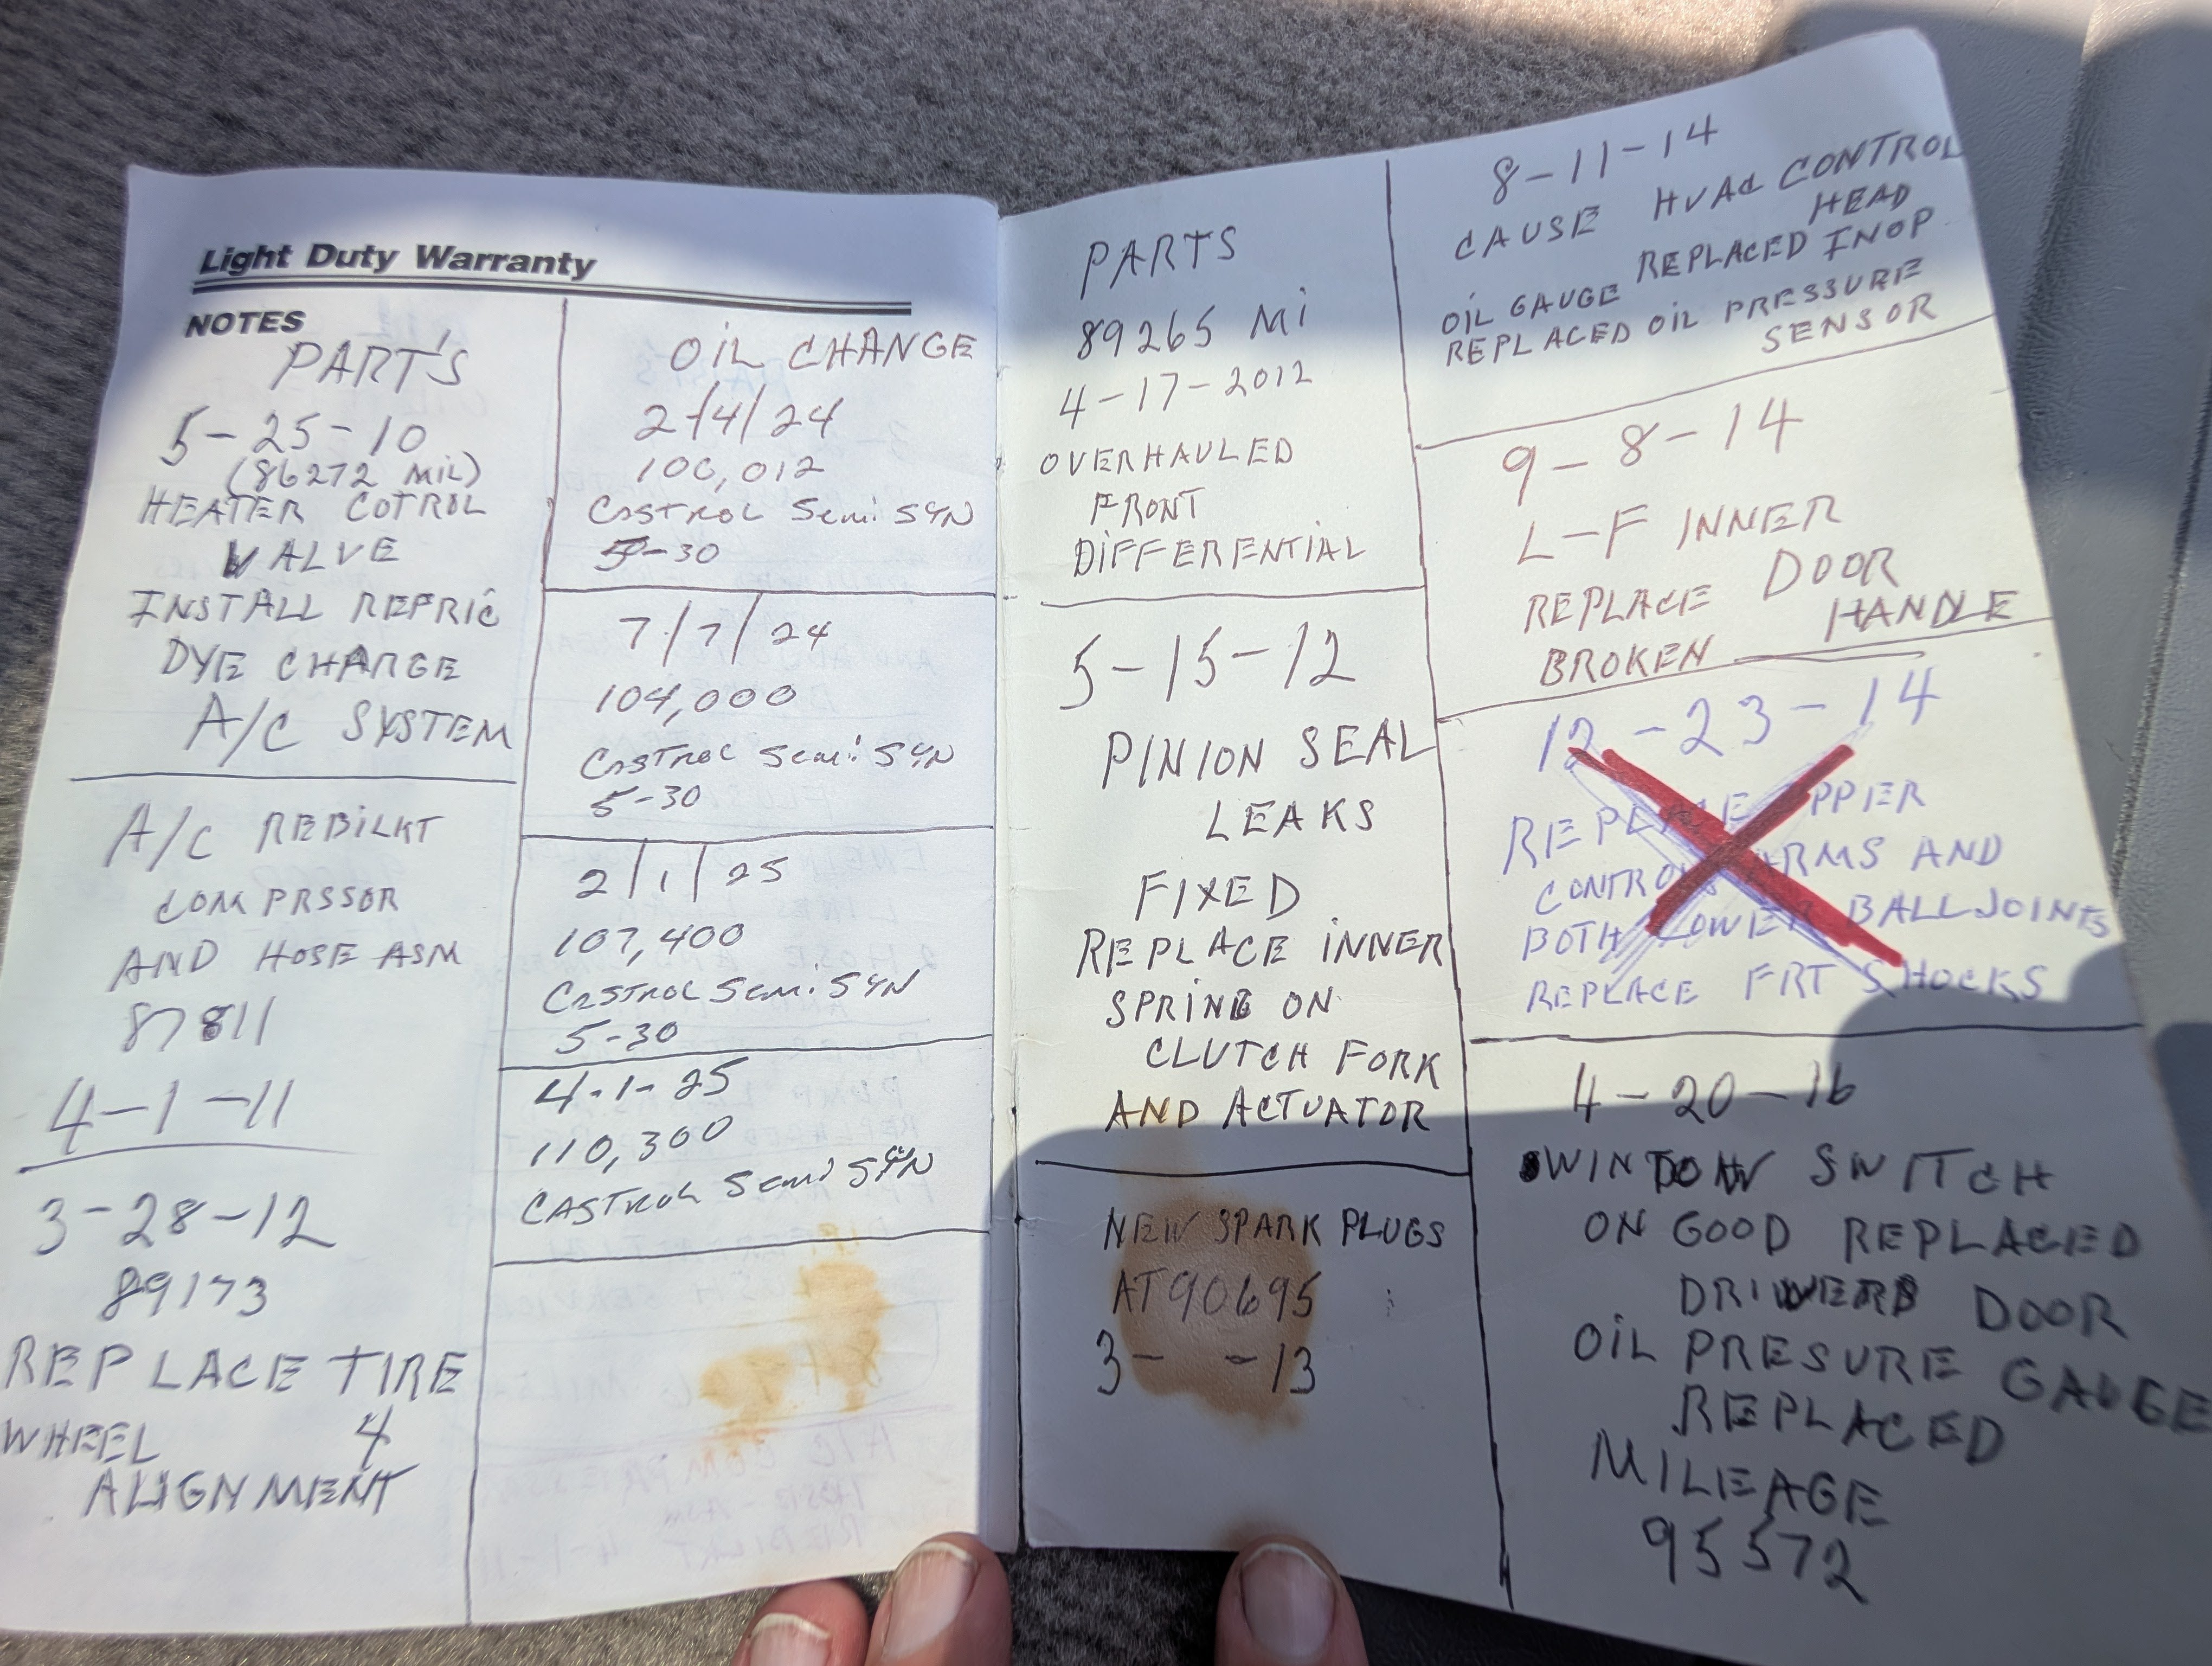 Light Duty Warranty
NOTES
PART'S
5-25-10
(86272 MIL)
HEATER COTROL
VALVE
INSTALL REFRIG
DYE CHARGE
A/C SYSTEM
A/C REBILKT
COMPRSSOR
AND HOSE ASM
87811
4-1-11
3-28-12
89173
REPLACE TIRE
WHEEL 4
ALIGNMENT
OIL CHANGE
2/4/24
100,012
CASTROL Semi SYN
5-30
7/7/24
104,000
CASTROL Semi SYN
5-30
2/1/25
107,400
CASTROL Semi SYN
5-30
4-1-25
110,300
CASTROL Semi SYN
PARTS
89265 Mi
4-17-2012
OVERHAULED
FRONT
DIFFERENTIAL
5-15-12
PINION SEAL
LEAKS
FIXED
REPLACE INNER
SPRING ON
CLUTCH FORK
AND ACTUATOR
NEW SPARK PLUGS
AT 90695
3- -13
8-11-14
CAUSE HVAC CONTROL
HEAD
REPLACED INOP
OIL GAUGE
REPLACED OIL PRESSURE
SENSOR
9-8-14
L-F INNER
REPLACE DOOR
BROKEN HANDLE
12-23-14
REPLACE UPPER
CONTROL ARMS AND
BOTH LOWER BALLJOINTS
REPLACE FRT SHOCKS
4-20-16
WINDOW SWITCH
ON GOOD REPLACED
DRIVERS DOOR
OIL PRESURE GAUGE
REPLACED
MILEAGE
95572